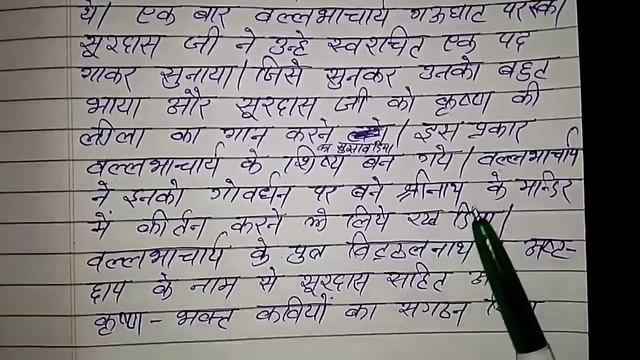 थे। एक बार वल्लभाचार्य गऊघाट पर रुके।
सूरदास जी ने उन्हे स्वरचित एक पद
गाकर सुनाया। जिसे सुनकर उनको बहुत
भाया और सूरदास जी को कृष्ण की
लीला का गान करने का सुझाव दिया। इस प्रकार
वल्लभाचार्य के शिष्य बन गये। वल्लभाचार्य
ने इनको गोवर्धन पर बने श्रीनाथ के मन्दिर
में कीर्तन करने के लिये रख
वल्लभाचार्य के पुत्र विट्ठलनाथ अष्ट-
छाप के नाम से सूरदास सहित
कृष्ण - भक्त कवियों का सगठन